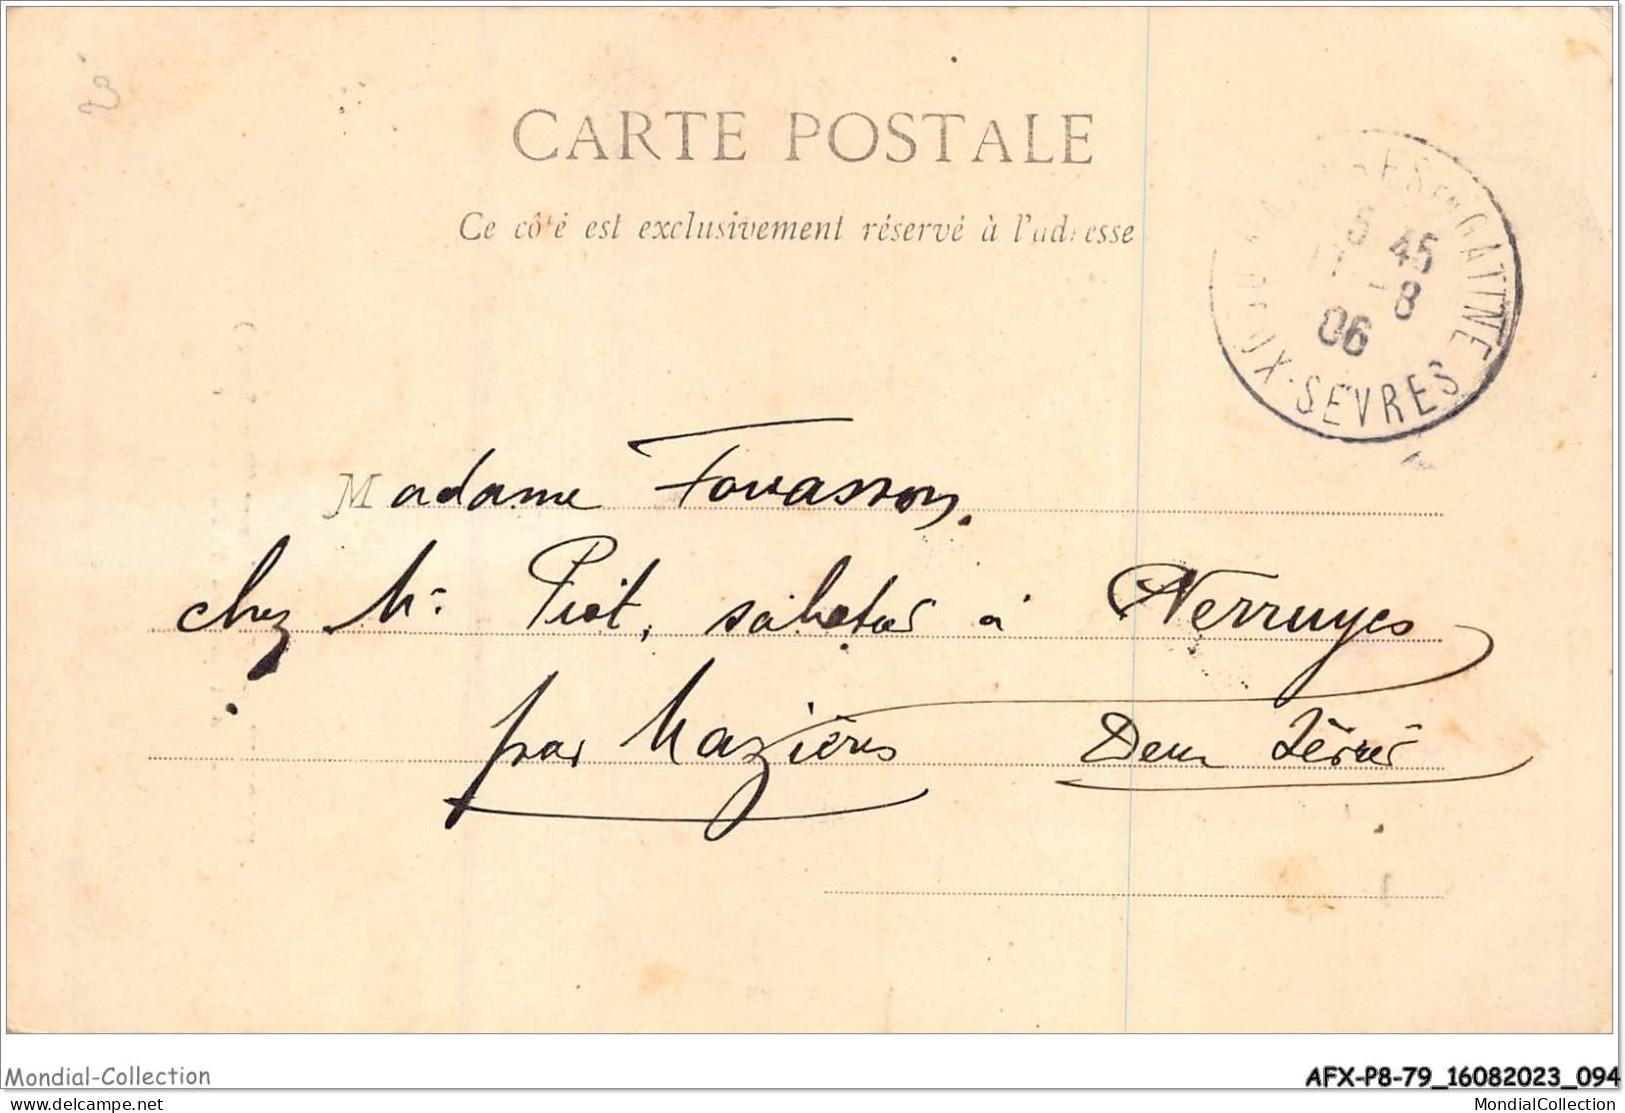 CARTE POSTALE
Ce côté est exclusivement réservé à l'adresse
EN GATINE
5 45
-8
06
DEUX-SEVRES
Madame Fouasson.
chez Mr Piot, sabotier à Verruyes
par Mazières Deux Sèvres
Mondial-Collection
AFX-P8-79_16082023_094
delcampe.net
MondialCollection